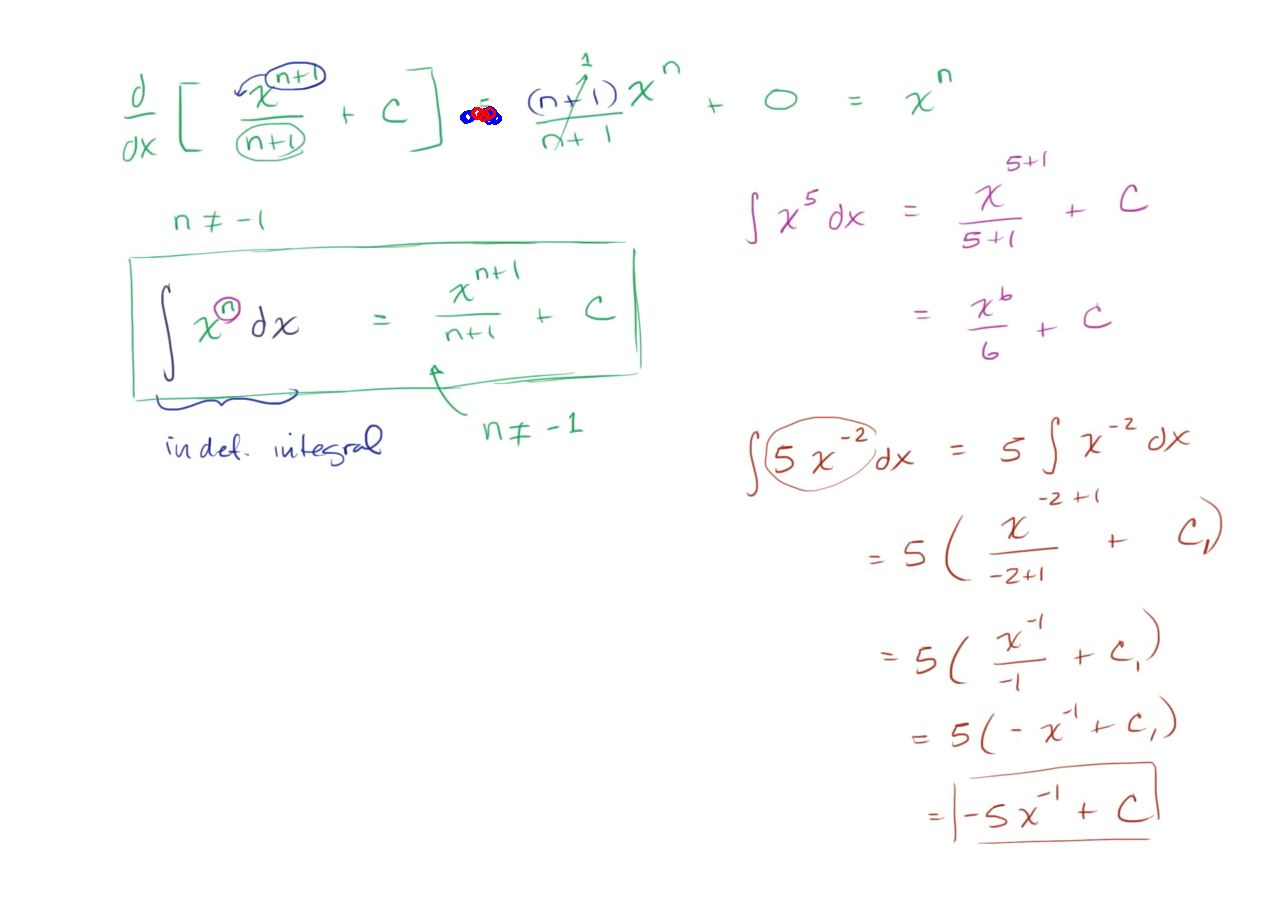 d/dx [ x^(n+1)/(n+1) + C ] = (n+1)x^n/(n+1) + 0 = x^n
1
n ≠ -1
∫ x^n dx = x^(n+1)/(n+1) + C
n ≠ -1
indef. integral
∫ x^5 dx = x^(5+1)/(5+1) + C
= x^6/6 + C
∫ 5x^(-2) dx = 5 ∫ x^(-2) dx
= 5 ( x^(-2+1)/(-2+1) + C₁ )
= 5 ( x^(-1)/(-1) + C₁ )
= 5 ( - x^(-1) + C₁ )
= -5x^(-1) + C